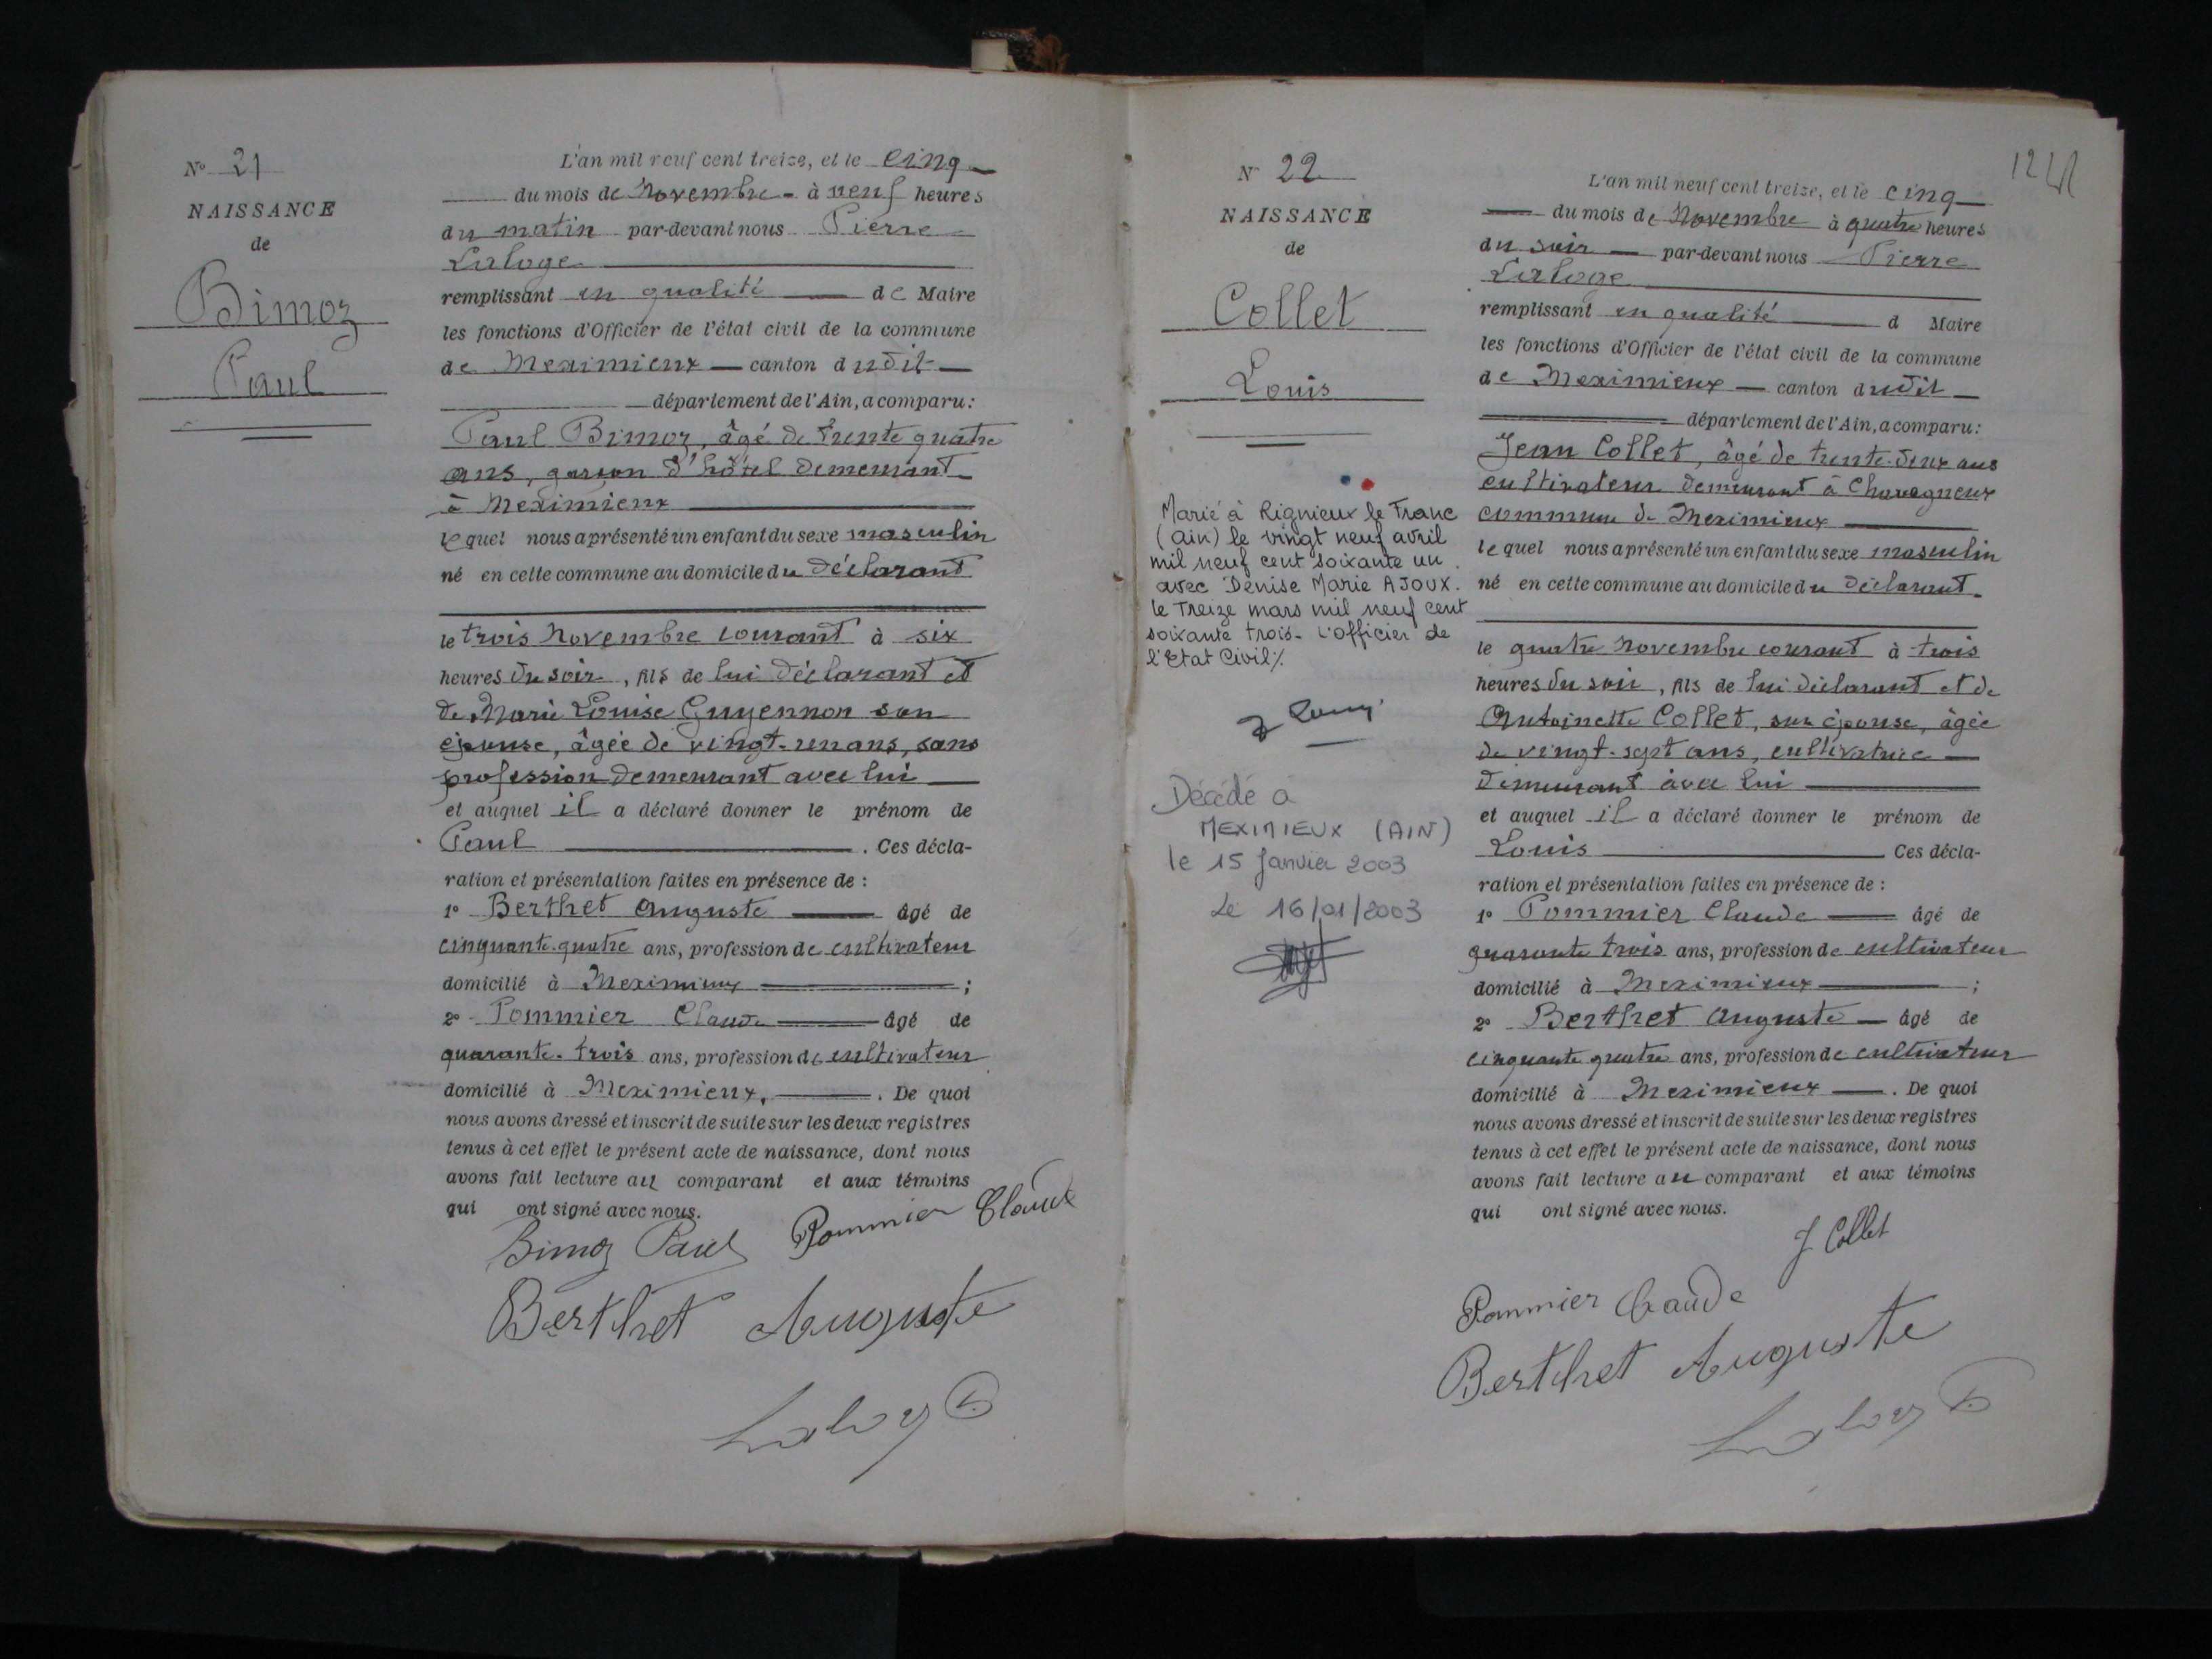 N° 21
NAISSANCE
de
Bimoz
Paul
L'an mil neuf cent treize, et le cinq
du mois de Novembre à neuf heures
du matin par-devant nous Pierre
Laloge
remplissant en qualité de Maire
les fonctions d'Officier de l'état civil de la commune
de Meximieux canton dudit
département de l'Ain, a comparu :
Paul Bimoz, âgé de trente quatre
ans, garçon d'hôtel demeurant
à Meximieux
lequel nous a présenté un enfant du sexe masculin
né en cette commune au domicile du déclarant
le trois Novembre courant à six
heures du soir, fils de lui déclarant et
de Marie Louise Guyennon son
épouse, âgée de vingt-un ans, sans
profession demeurant avec lui
et auquel il a déclaré donner le prénom de
Paul . Ces décla-
ration et présentation faites en présence de :
1° Berthet Auguste âgé de
cinquante-quatre ans, profession de cultivateur
domicilié à Meximieux ;
2° Pommier Claude âgé de
quarante-trois ans, profession de cultivateur
domicilié à Meximieux, . De quoi
nous avons dressé et inscrit de suite sur les deux registres
tenus à cet effet le présent acte de naissance, dont nous
avons fait lecture au comparant et aux témoins
qui ont signé avec nous.
Bimoz Paul Pommier Claude
Berthet Auguste
Laloge
124
N° 22
NAISSANCE
de
Collet
Louis
Marié à Rignieux le Franc
(Ain) le vingt neuf avril
mil neuf cent soixante un
avec Denise Marie AJOUX.
le Treize mars mil neuf cent
soixante trois - L'officier de
l'Etat Civil ./.
Décédé à
MEXIMIEUX (AIN)
le 15 Janvier 2003
Le 16/01/2003
L'an mil neuf cent treize, et le cinq
du mois de Novembre à quatre heures
du soir par-devant nous Pierre
Laloge
remplissant en qualité d Maire
les fonctions d'Officier de l'état civil de la commune
de Meximieux canton dudit
département de l'Ain, a comparu :
Jean Collet, âgé de trente-deux ans
cultivateur demeurant à Chavagneux
commune de Meximieux
lequel nous a présenté un enfant du sexe masculin
né en cette commune au domicile du déclarant
le quatre Novembre courant à trois
heures du soir, fils de lui déclarant et de
Antoinette Collet, son épouse, âgée
de vingt-sept ans, cultivatrice
demeurant avec lui
et auquel il a déclaré donner le prénom de
Louis Ces décla-
ration et présentation faites en présence de :
1° Pommier Claude âgé de
quarante trois ans, profession de cultivateur
domicilié à Meximieux ;
2° Berthet Auguste âgé de
cinquante quatre ans, profession de cultivateur
domicilié à Meximieux . De quoi
nous avons dressé et inscrit de suite sur les deux registres
tenus à cet effet le présent acte de naissance, dont nous
avons fait lecture au comparant et aux témoins
qui ont signé avec nous.
J Collet
Pommier Claude
Berthet Auguste
Laloge